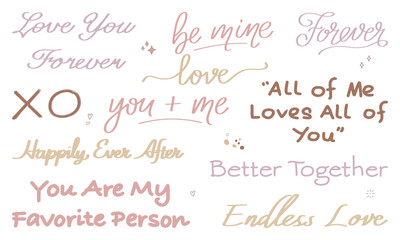 Love You
Forever
be mine
Forever
love
XO
you + me
"All of Me
Loves All of
You"
Happily Ever After
Better Together
You Are My
Favorite Person
Endless Love